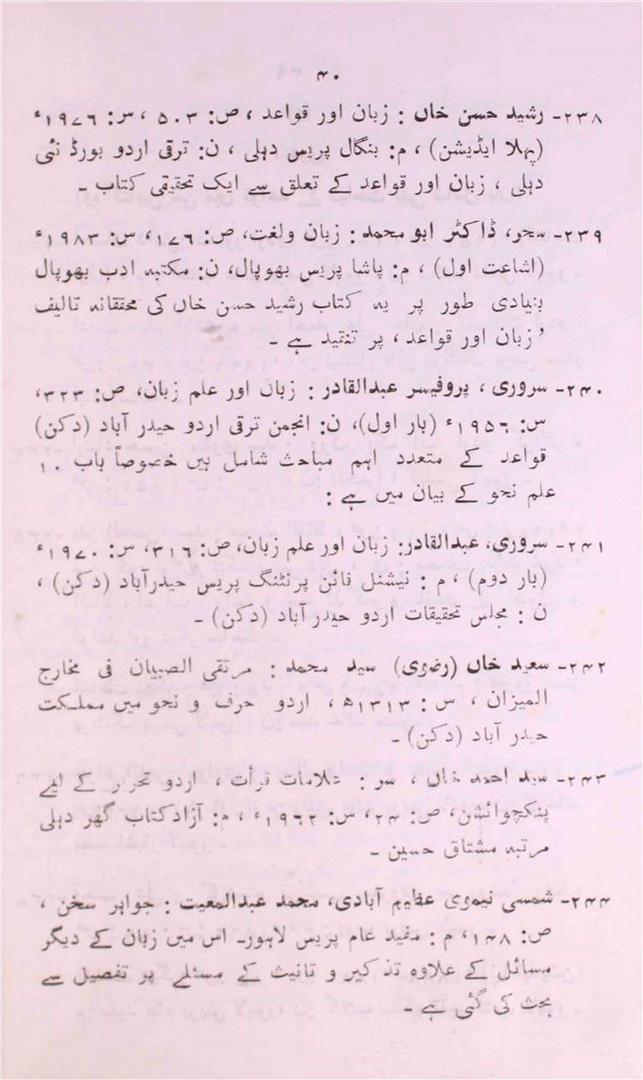 ۴۰
۲۳۸- رشید حسن خاں : زبان اور قواعد ، ص: ۵۰۳ ، س: ۱۹۷۶ء
(پہلا ایڈیشن) ، م: بنگال پریس دہلی ، ن: ترقی اردو بورڈ نئی
دہلی ، زبان اور قواعد کے تعلق سے ایک تحقیقی کتاب -
۲۳۹- سحر، ڈاکٹر ابو محمد: زبان ولغت، ص: ۱۷۶، س: ۱۹۸۳ء
(اشاعت اول) ، م: پاشا پریس بھوپال، ن: مکتبہ ادب بھوپال
بنیادی طور پر یہ کتاب رشید حسن خاں کی محققانہ تالیف
'زبان اور قواعد، پر تنقید ہے -
۲۴۰- سروری، پروفیسر عبدالقادر: زبان اور علم زبان، ص: ۳۲۳،
س: ۱۹۵۶ء (بار اول)، ن: انجمن ترقی اردو حیدر آباد (دکن)
قواعد کے متعدد اہم مباحث شامل ہیں خصوصاً باب ۱۰
علم نحو کے بیان میں ہے :
۲۴۱- سروری، عبدالقادر: زبان اور علم زبان، ص: ۳۱۶، س: ۱۹۷۰ء
(بار دوم) ، م : نیشنل فائن پرنٹنگ پریس حیدرآباد (دکن) ،
ن : مجلس تحقیقات اردو حیدر آباد (دکن) -
۲۴۲- سعید خاں (رضوی) سید محمد : مرتقی الصبیان فی مخارج
المیزان ، س : ۱۳۱۳ھ، اردو حرف و نحو میں مملکت
حیدر آباد (دکن) -
۲۴۳- سید احمد خاں ، سر : علامات قرأت ، اردو تحریر کے لیے
پنکچوائشن، ص: ۲۴، س: ۱۹۶۲ء ، م: آزاد کتاب گھر دہلی
مرتبہ مشتاق حسین -
۲۴۴- شمسی نیموی عظیم آبادی، محمد عبدالمعیت : جواہر سخن ،
ص: ۱۴۸، م : مفید عام پریس لاہور- اس میں زبان کے دیگر
مسائل کے علاوہ تذکیر و تانیث کے مسئلے پر تفصیل سے
بحث کی گئی ہے -